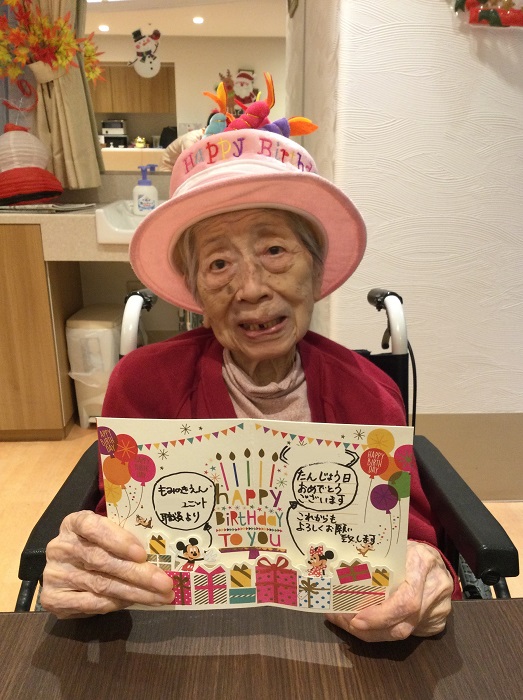 Happy Birth
HAPPY
BIRTH
DAY
もみのきえん
ユニット
職員より
HAPPY
BIRTHDAY
TO YOU
たんじょう日
おめでとう
ございます
これからも
よろしくお願い
致します
HAPPY
BIRTH
DAY